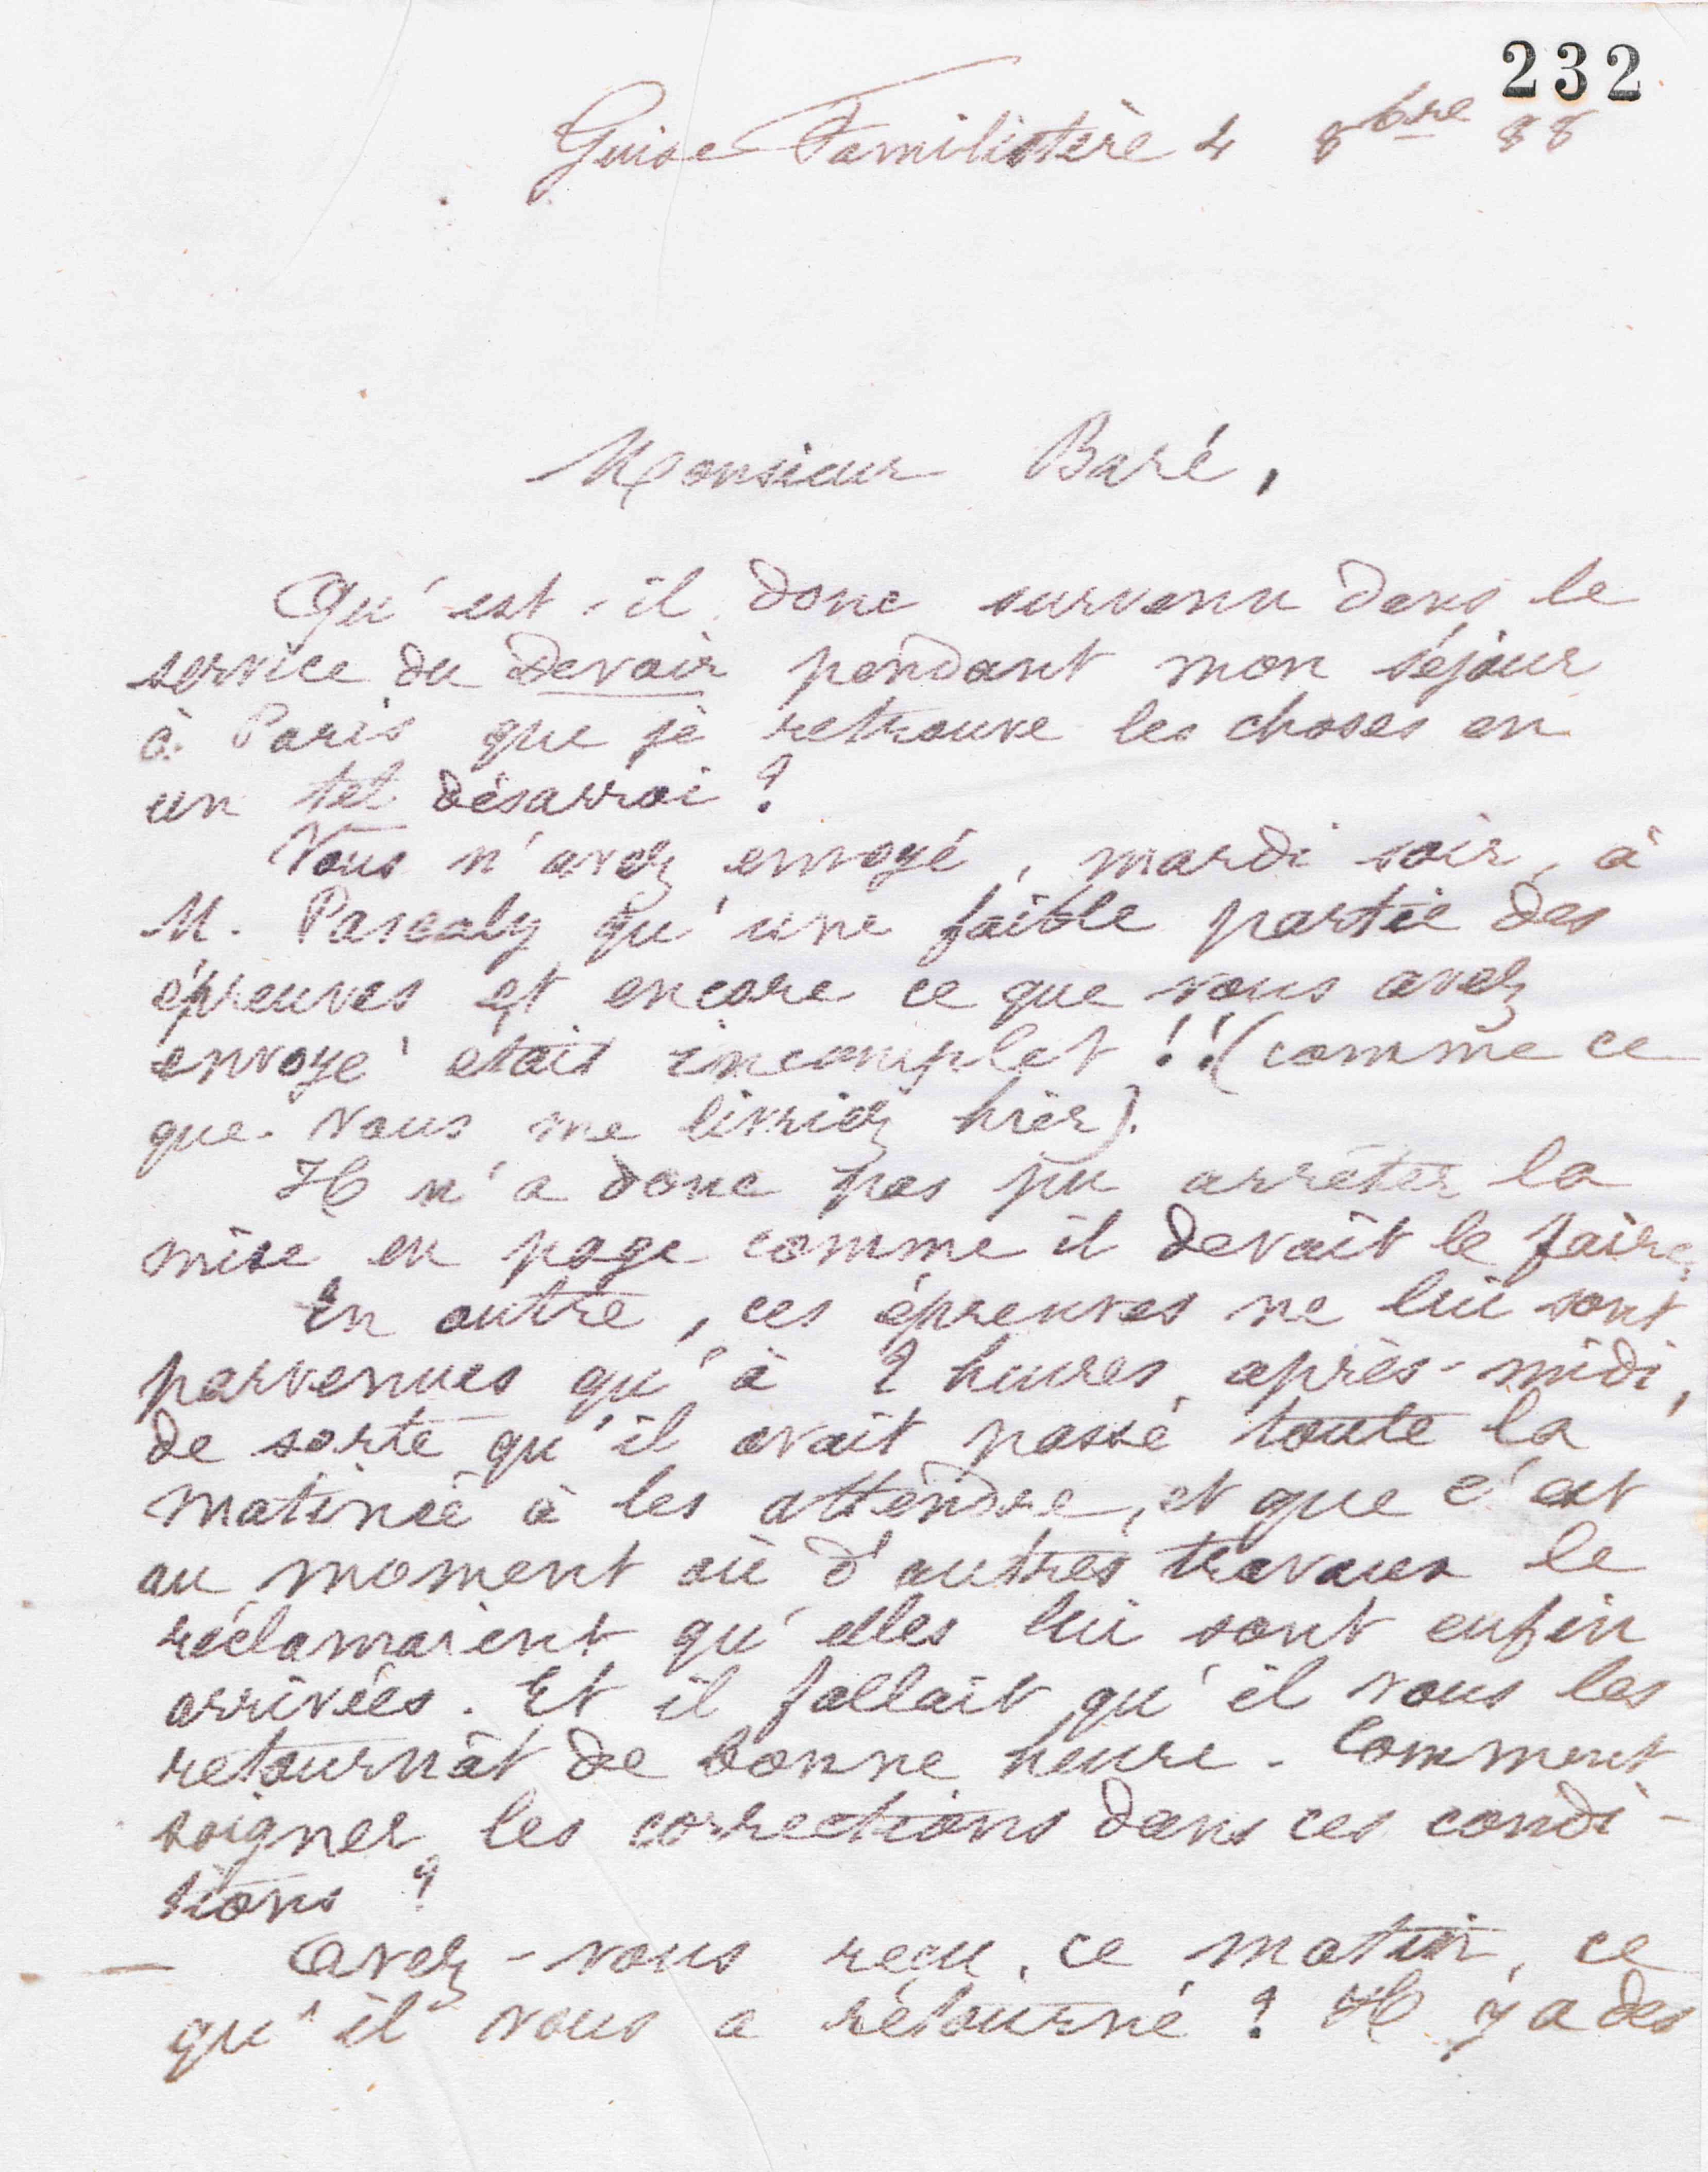 232
Guise Familistère 4 8bre 88
Monsieur Baré,
Qu'est-il donc survenu dans le
service du Devoir pendant mon séjour
à Paris que je retrouve les choses en
un tel désarroi ?
Vous n'avez envoyé, mardi soir, à
M. Pascaly qu'une faible partie des
épreuves et encore ce que vous avez
envoyé était incomplet !! (comme ce
que vous me livriez hier).
Il n'a donc pas pu arrêter la
mise en page comme il devait le faire.
En outre, ces épreuves ne lui sont
parvenues qu'à 2 heures après-midi,
de sorte qu'il avait passé toute la
matinée à les attendre, et que c'est
au moment où d'autres travaux le
réclamaient qu'elles lui sont enfin
arrivées. Et il fallait qu'il vous les
retournât de bonne heure. Comment
soigner les corrections dans ces condi-
tions ?
— Avez-vous reçu, ce matin, ce
qu'il vous a retourné ? Il y a des